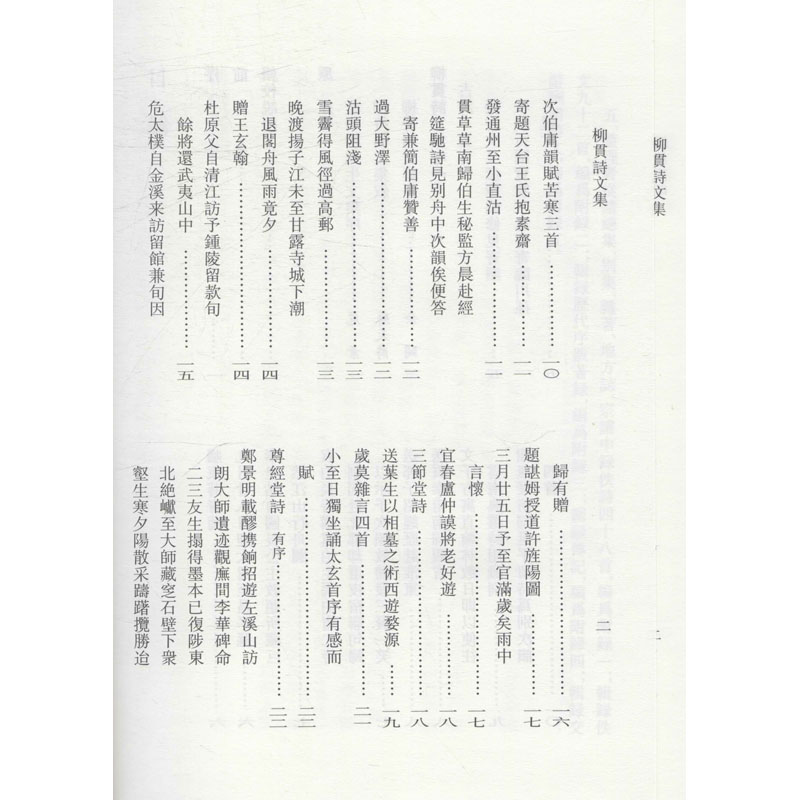 柳貫詩文集
柳貫詩文集
二
二
次伯庸韻賦苦寒三首……一〇
寄題天台王氏抱素齋……一一
發通州至小直沽……一一
貫草草南歸伯生秘監方晨赴經
筵馳詩見别舟中次韻俟便答
寄兼簡伯庸贊善……一二
過大野澤……一二
沽頭阻淺……一三
雪霽得風徑過高郵……一三
晚渡揚子江未至甘露寺城下潮
退閣舟風雨竟夕……一四
贈王玄翰……一四
杜原父自清江訪予鍾陵留款旬
餘將還武夷山中……一五
危太樸自金溪来訪留館兼旬因
歸有贈……一六
題諶姆授道許旌陽圖……一七
三月廿五日予至官滿歲矣雨中
言懷……一七
宜春盧仲謨將老好遊……一八
三節堂詩……一八
送葉生以相墓之術西遊婺源……一九
歲莫雜言四首……二一
小至日獨坐誦太玄首序有感而
賦……二二
尊經堂詩 有序……二二
鄭景明載醪携餉招遊左溪山訪
朗大師遺迹觀廡間李華碑命
二三友生搨得墨本已復陟東
北絶巘至大師藏穸石壁下衆
壑生寒夕陽散采躊躇攬勝迨